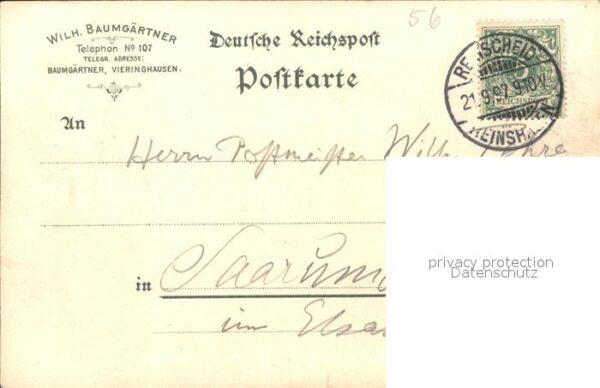 WILH. BAUMGÄRTNER
Telephon № 107
TELEGR. ADRESSE:
BAUMGÄRTNER, VIERINGHAUSEN.
56
Deutsche Reichspost
Postkarte
REICHSPOST
REMSCHEID-
21.9.97. 9-10 V.
REINSHAGEN
An
Herrn Postmeister Wilh.
in Saarun
im Elsa
privacy protection
Datenschutz